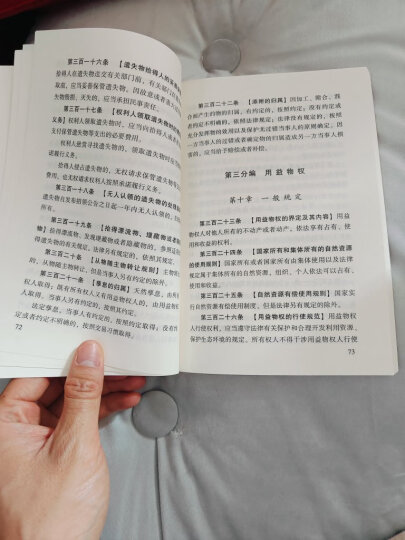 第三百一十六条 【遗失物拾得人的妥善保管义务】
拾得人在遗失物送交有关部门前，有关部门在遗失物
应当妥善保管遗失物。因故意或者重大过失致使遗
失物毁损、灭失的，应当承担民事责任。
第三百一十七条 【权利人领取遗失物时的
义务】 权利人领取遗失物时，应当向拾得人或者有关部门
支付保管遗失物等支出的必要费用。
权利人悬赏寻找遗失物的，领取遗失物时应当
诺履行义务。
拾得人侵占遗失物的，无权请求保管遗失物等支出的
费用，也无权请求权利人按照承诺履行义务。
第三百一十八条 【无人认领的遗失物的处理】
遗失物自发布招领公告之日起一年内无人认领的，归国
第三百一十九条 【拾得漂流物、埋藏物或者隐藏
物】 拾得漂流物、发现埋藏物或者隐藏物的，参照适用拾
得遗失物的有关规定。法律另有规定的，依照其规定。
第三百二十条 【从物随主物转让规则】 主物转让
的，从物随主物转让，但是当事人另有约定的除外。
第三百二十一条 【孳息的归属】 天然孳息，由所有
权人取得；既有所有权人又有用益物权人的，由用益物权
人取得。当事人另有约定的，按照其约定。
法定孳息，当事人有约定的，按照约定取得；没有约
定或者约定不明确的，按照交易习惯取得。
72
第三百二十二条 【添附的归属】 因加工、附合、混
合而产生的物的归属，有约定的，按照约定；没有约定或
者约定不明确的，依照法律规定；法律没有规定的，按照
充分发挥物的效用以及保护无过错当事人的原则确定。因
一方当事人的过错或者确定物的归属造成另一方当事人损
害的，应当给予赔偿或者补偿。
第三分编 用益物权
第十章 一般规定
第三百二十三条 【用益物权的界定及其内容】 用益
物权人对他人所有的不动产或者动产，依法享有占有、使
用和收益的权利。
第三百二十四条 【国家所有和集体所有的自然资源
的使用规则】 国家所有或者国家所有由集体使用以及法律
规定属于集体所有的自然资源，组织、个人依法可以占有、
使用和收益。
第三百二十五条 【自然资源有偿使用规则】 国家实
行自然资源有偿使用制度，但是法律另有规定的除外。
第三百二十六条 【用益物权的行使规范】 用益物权
人行使权利，应当遵守法律有关保护和合理开发利用资源、
保护生态环境的规定。所有权人不得干涉用益物权人行使
73